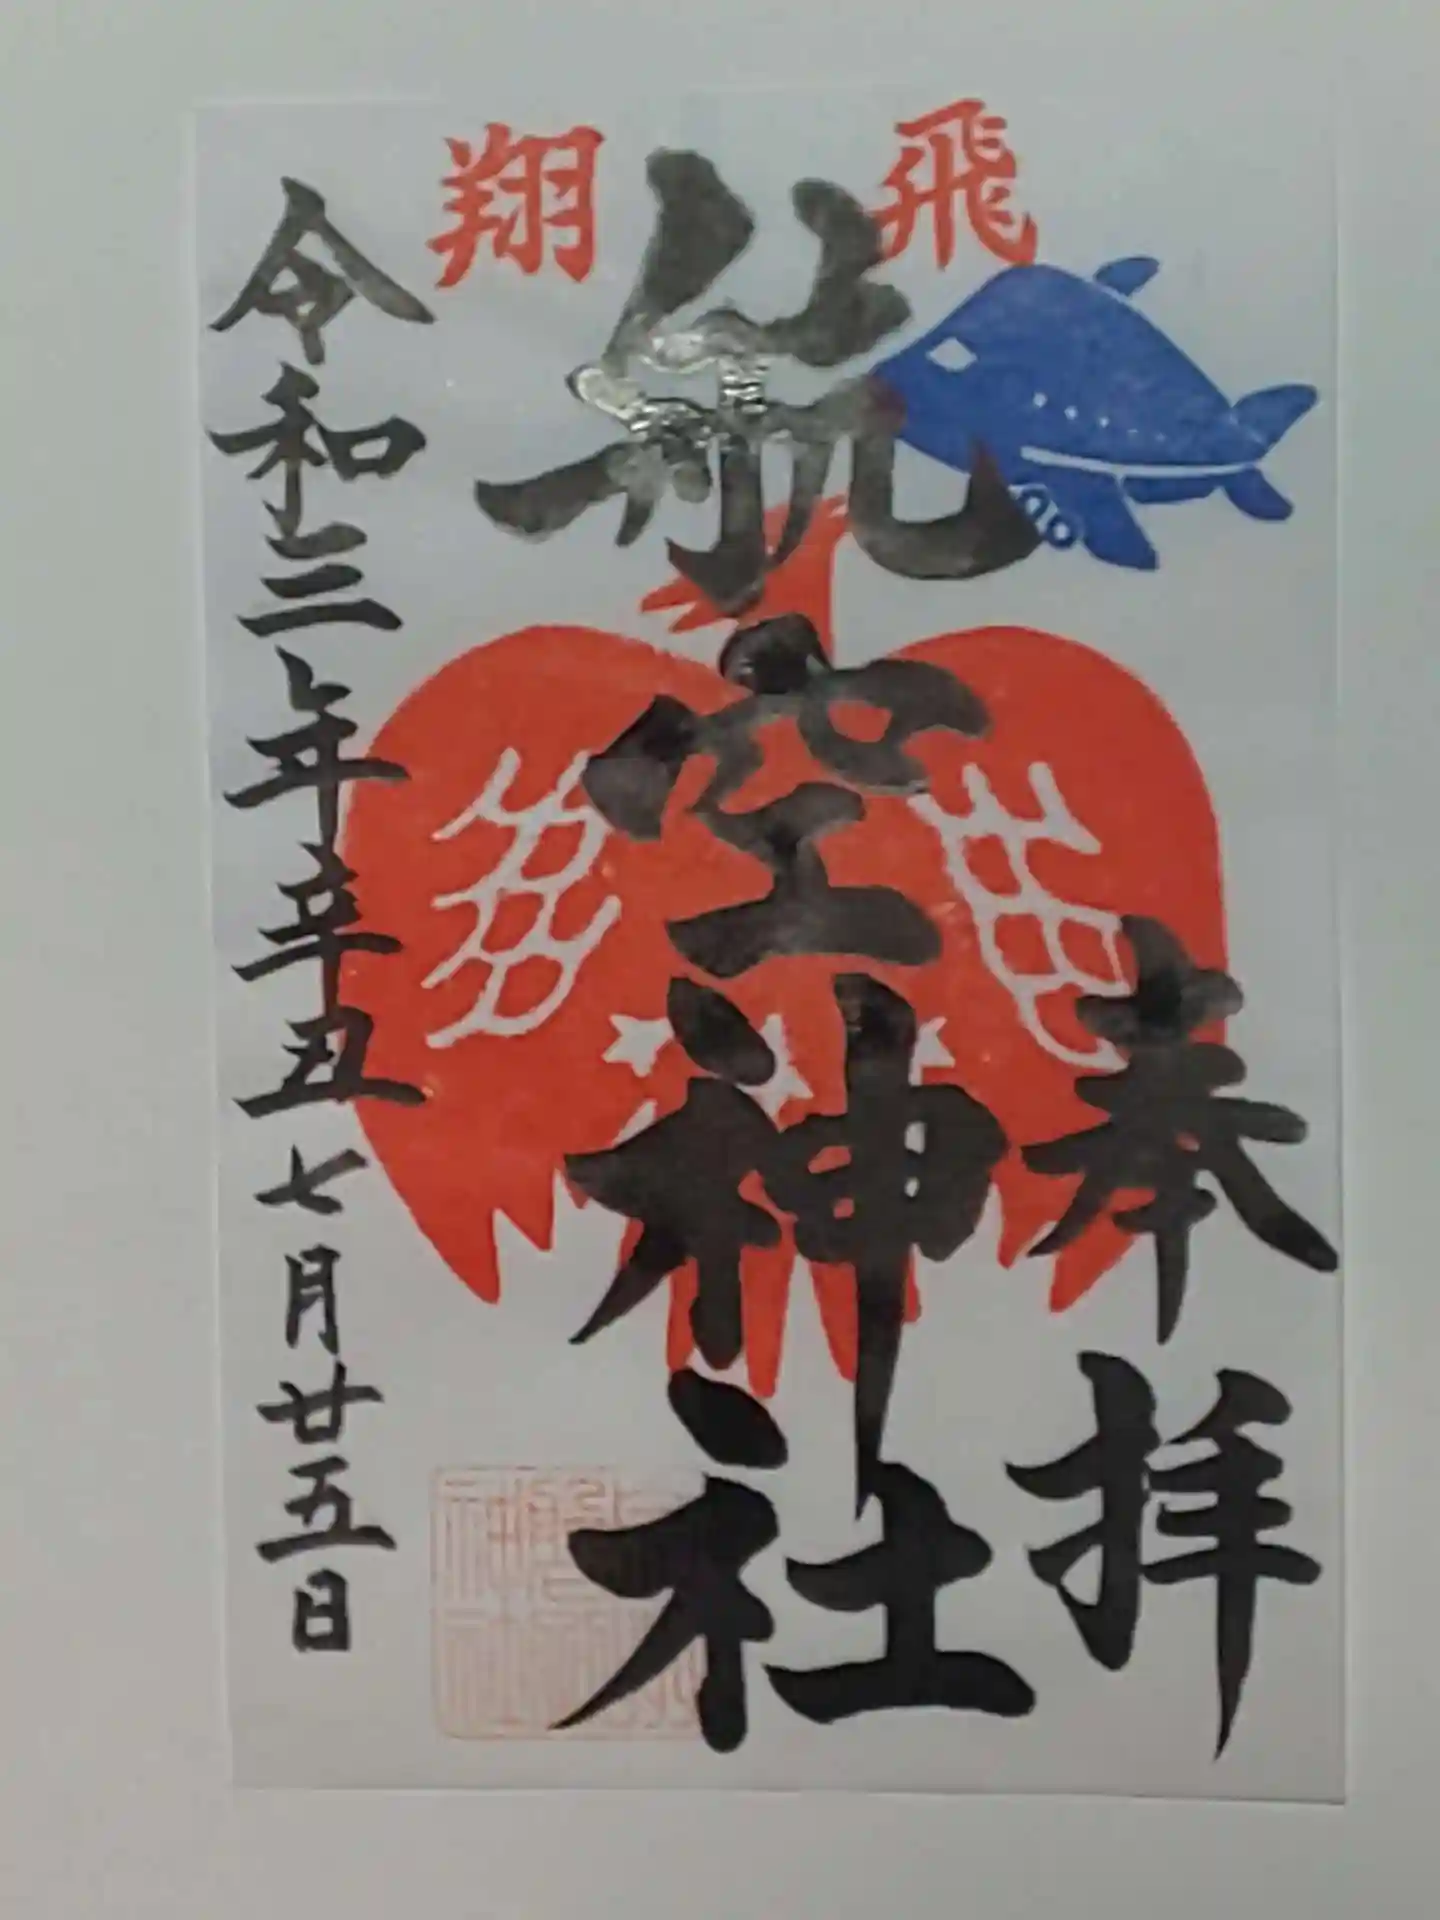 奉拝
飛翔
航空神社
令和三年辛丑七月廿五日